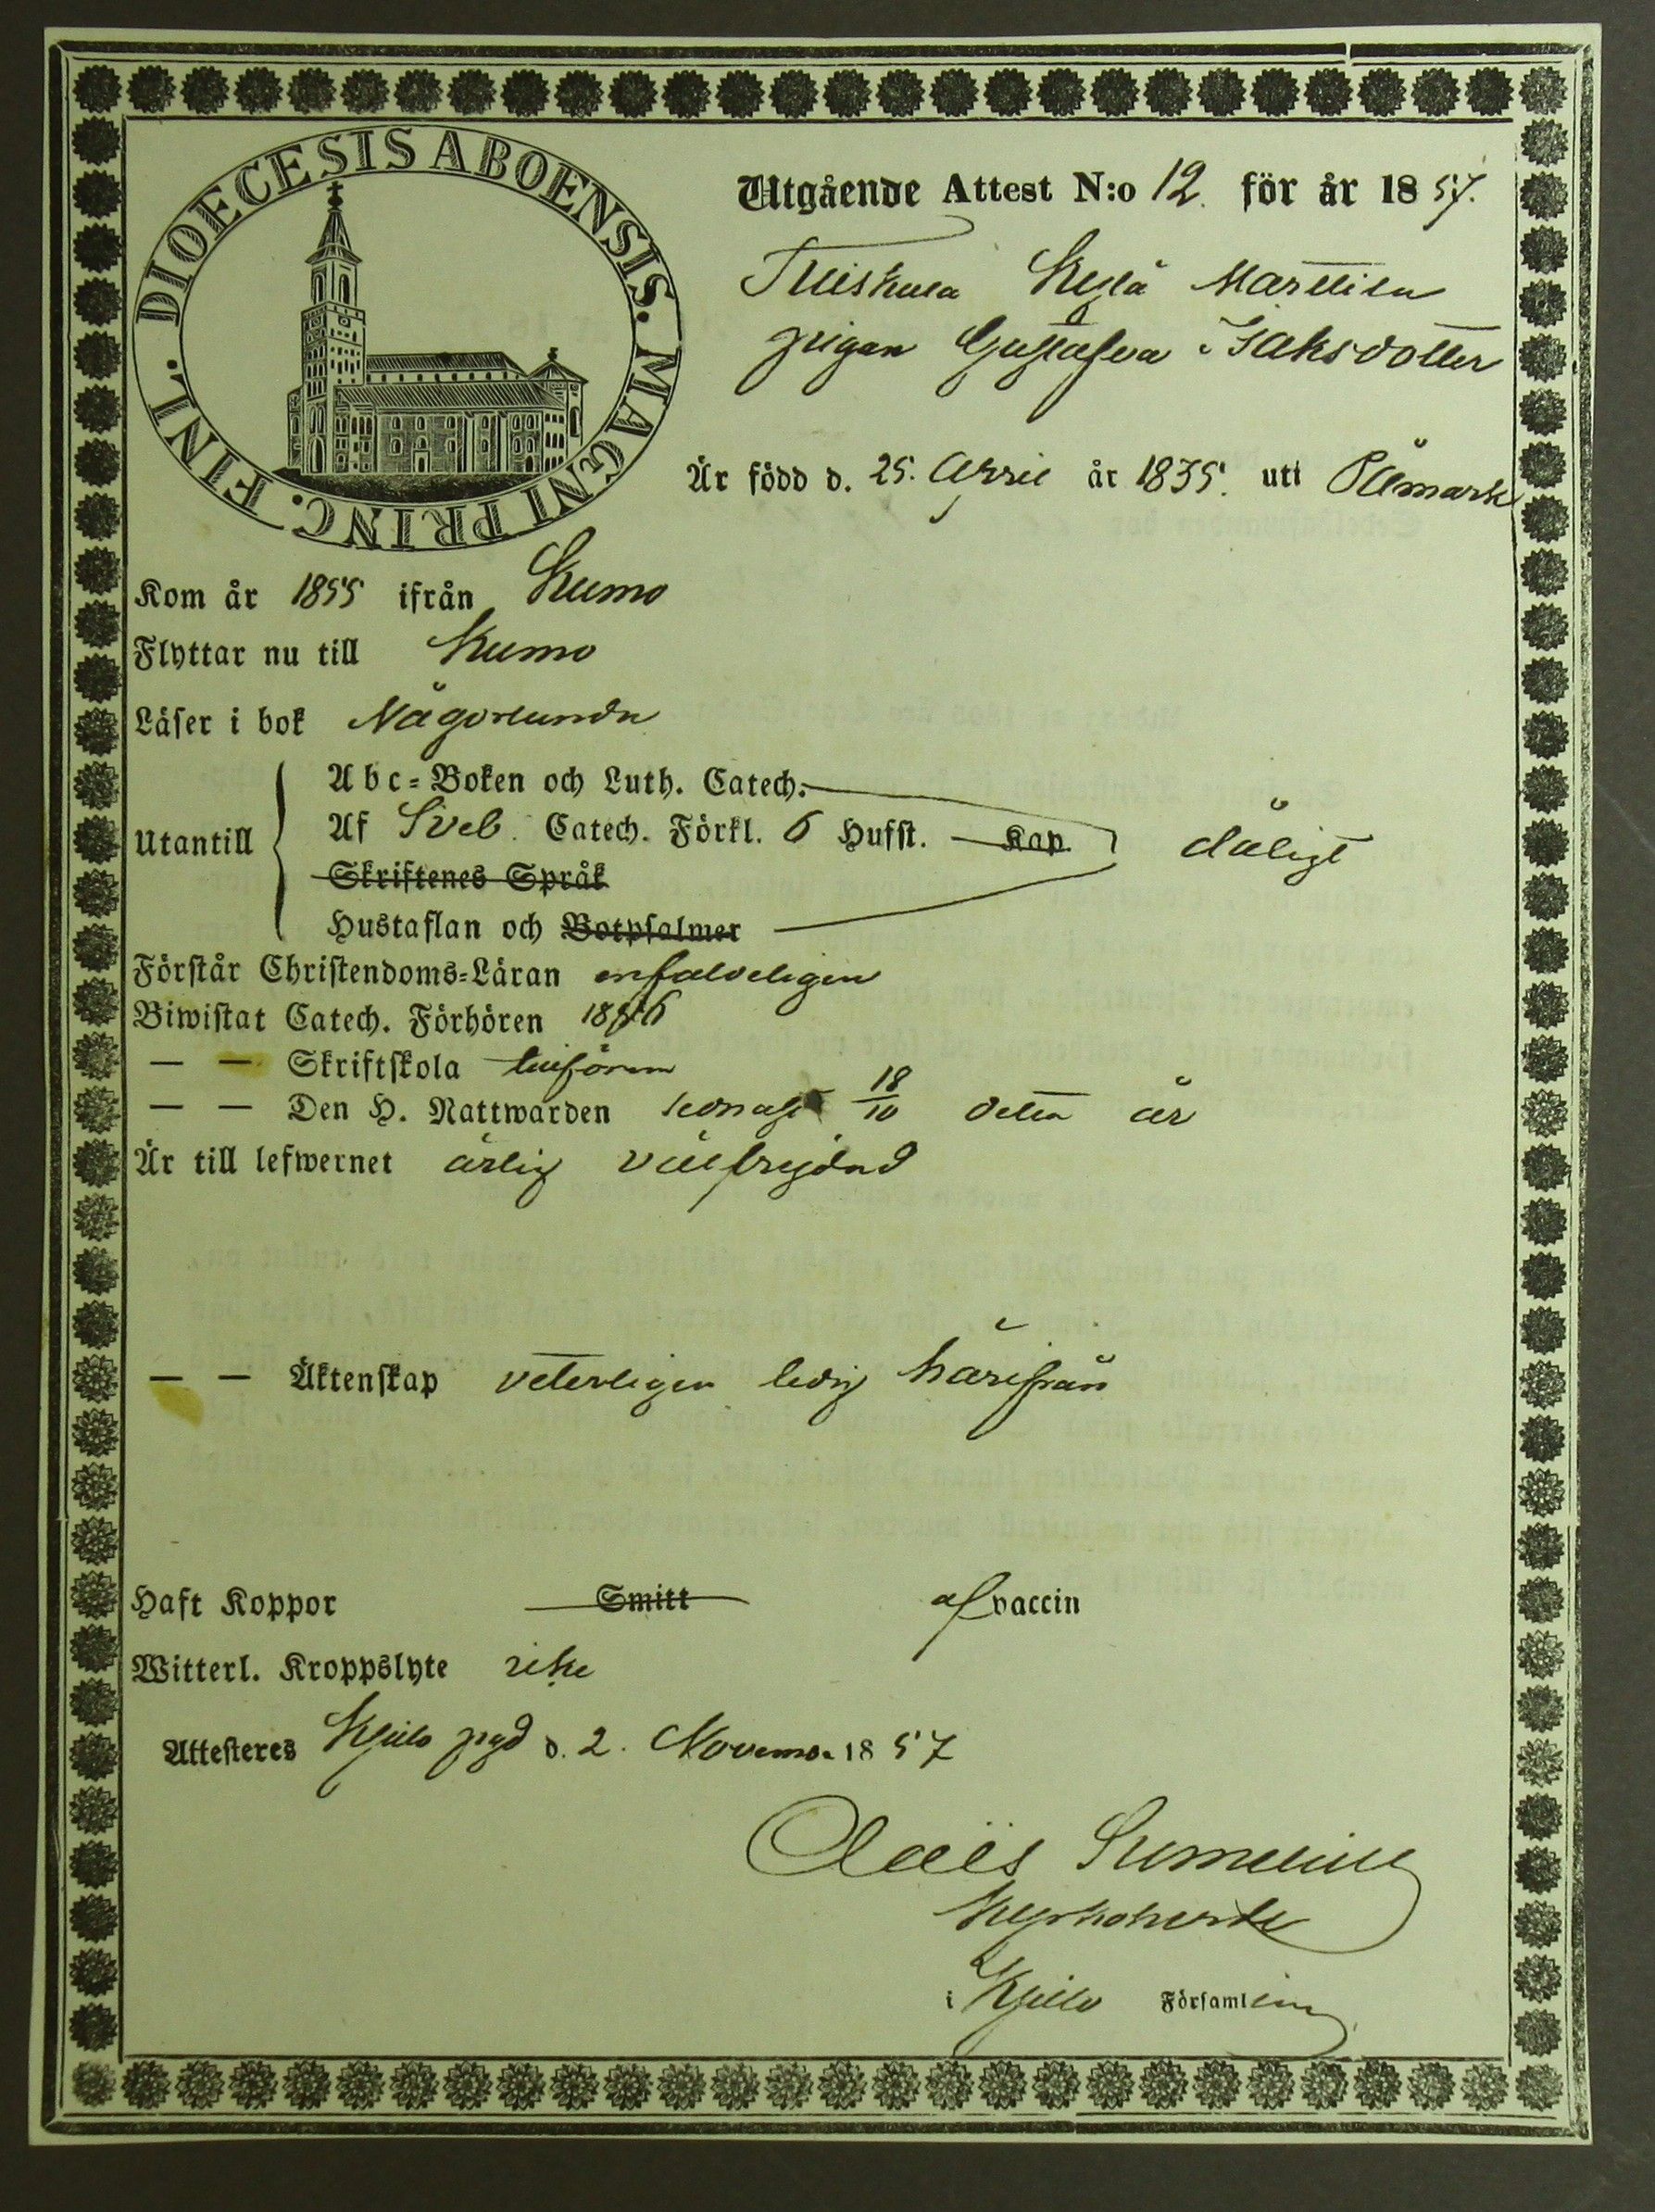 DIOECESIS ABOENSIS. MAGNI PRINC. FINL.
Utgående Attest N:o 12. för år 1857.
Kylä Marttila
pigan Gustafva Isaksdotter
Är född d. 25. April år 1835. uti Påmark
Kom år 1855 ifrån Kumo
Flyttar nu till Kumo
Läser i bok Någorlunda
Abc-Boken och Luth. Catech.
Utantill Af Sveb. Catech. Förkl. 6 Hufst. Kap. dåligt
Skriftenes Språk
Hustaflan och Botpsalmer
Förstår Christendoms-Läran enfaldeligen
Biwistat Catech. Förhören 1856
— — Skriftskola tillförene
— — Den H. Nattwarden sednast 18/10 detta år
Är till lefwernet ärlig välfrejdad
— — Äktenskap veterligen ledig härifrån
Haft Koppor Smitt af vaccin
Witterl. Kroppslyte icke
Attesteres Kjulo pgd d. 2. Novemb. 1857
Claës Lumelius
Kyrkoherde
i Kjulo Församling